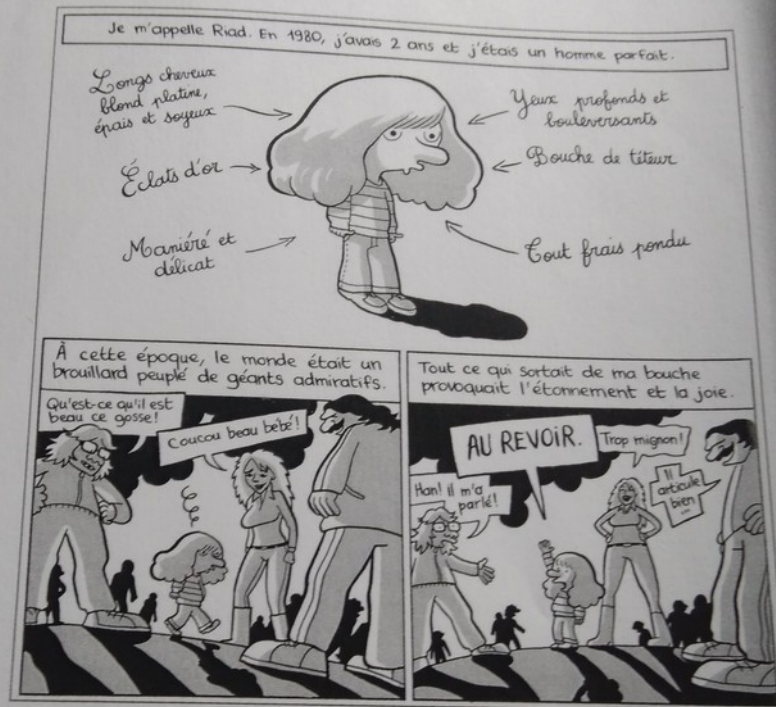 Je m'appelle Riad. En 1980, j'avais 2 ans et j'étais un homme parfait.
Longs cheveux
blond platine,
épais et soyeux
Yeux profonds et
bouleversants
Éclats d'or
Bouche de têteur
Maniéré et
délicat
Tout frais pondu
À cette époque, le monde était un
brouillard peuplé de géants admiratifs.
Qu'est-ce qu'il est
beau ce gosse!
Coucou beau bébé!
Tout ce qui sortait de ma bouche
provoquait l'étonnement et la joie.
Han! il m'a
parlé!
AU REVOIR.
Trop mignon!
Il
articule
bien
...